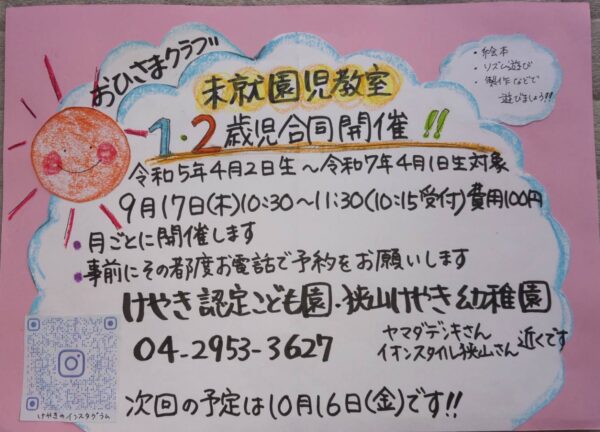 おひさまクラブ
未就園児教室
・絵本
・リズム遊び
・製作などで
遊びましょう!!
1・2歳児合同開催!!
令和5年4月2日生～令和7年4月1日生対象
9月17日(木)10:30～11:30(10:15受付)費用100円
●月ごとに開催します
●事前にその都度お電話で予約をお願いします
けやき認定こども園・狭山けやき幼稚園
04-2953-3627
ヤマダデンキさん
イオンスタイル狭山さん 近くです
けやきのインスタグラム
次回の予定は10月16日(金)です!!